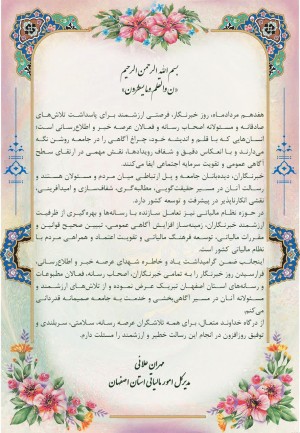 بسم الله الرحمن الرحیم
«ن والقلم وما یسطرون»
هفدهم مردادماه، روز خبرنگار، فرصتی ارزشمند برای پاسداشت تلاش‌های
صادقانه و مسئولانه اصحاب رسانه و فعالان عرصه خبر و اطلاع‌رسانی است؛
انسان‌هایی که با قلم و اندیشه خود، چراغ آگاهی را در جامعه روشن نگه
می‌دارند و با انعکاس دقیق و شفاف رویدادها، نقش مهمی در ارتقای سطح
آگاهی عمومی و تقویت سرمایه اجتماعی ایفا می‌کنند.
خبرنگاران، دیده‌بانان جامعه و پل ارتباطی میان مردم و مسئولان هستند و
رسالت آنان در مسیر حقیقت‌گویی، مطالبه‌گری، شفاف‌سازی و امیدآفرینی،
نقشی انکارناپذیر در پیشرفت و توسعه کشور دارد.
در حوزه نظام مالیاتی نیز تعامل سازنده با رسانه‌ها و بهره‌گیری از ظرفیت
ارزشمند خبرنگاران، زمینه‌ساز افزایش آگاهی عمومی، تبیین صحیح قوانین و
مقررات مالیاتی، توسعه فرهنگ مالیاتی و تقویت اعتماد و همراهی مردم با
نظام مالیاتی کشور است.
اینجانب ضمن گرامیداشت یاد و خاطره شهدای عرصه خبر و اطلاع‌رسانی،
فرارسیدن روز خبرنگار را به تمامی خبرنگاران، اصحاب رسانه، فعالان مطبوعات
و رسانه‌های استان اصفهان تبریک عرض نموده و از تلاش‌های ارزشمند و
مسئولانه آنان در مسیر آگاهی‌بخشی و خدمت به جامعه صمیمانه قدردانی
می‌کنم.
از درگاه خداوند متعال، برای همه تلاشگران عرصه رسانه، سلامتی، سربلندی و
توفیق روزافزون در انجام این رسالت خطیر و ارزشمند را مسئلت دارم.
مهران علائی
مدیرکل امور مالیاتی استان اصفهان